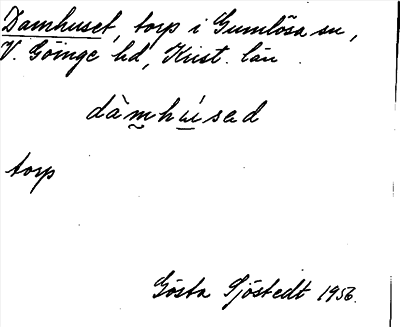 Damhuset, torp i Gumlösa sn,
V. Göinge hd, Krist. län.
dàmhúsəd
torp
Gösta Sjöstedt 1956.